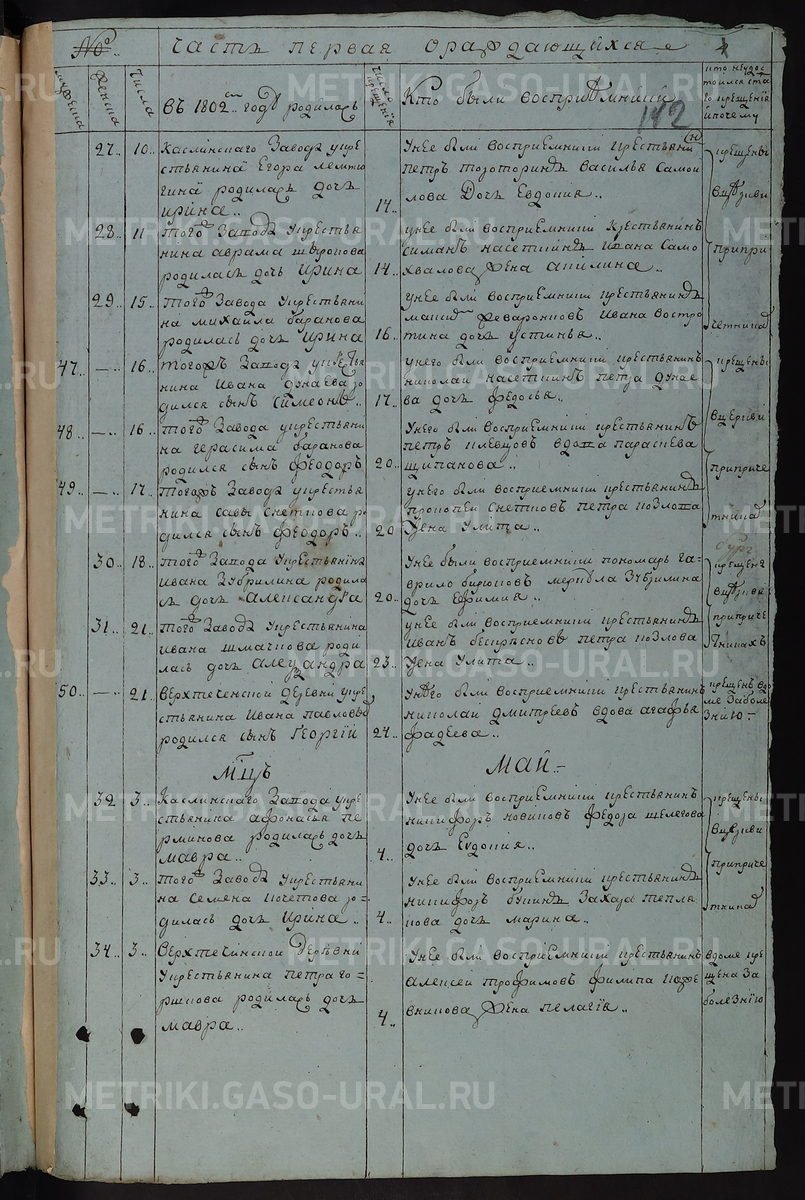 № часть первая о раждающихся
мужеска
женска
числа
въ 1802м годѣ родились
число крещенiя
Кто были воспрiемники
кто не удостоился ста
го крещенiя
и почему
142
27.. 10.. Каслинскаго Завода у кре
стьянина Егора
родилась дочь
Ирина..
14..
У нее были восприемники крестьяни(н)
петръ василья Самой
лова Дочь Евдокия..
крещены
в церкви
при при
четникахъ
28.. 11.. того Завода у крестья
нина аврама широкова
родилась дочь Ирина
14..
у нее были восприемники крестьянинъ
ивана Само
хвалова жена акилина..
29.. 15.. того Завода у крестьяни
на михайла баранова
родилась дочь Ирина
16..
у нее были восприемники крестьянинъ
ивана востро
тина дочь устинья..
47.. —.. 16.. того Завода у крестья
нина Ивана дунаева ро
дился сынъ Симеонъ..
17..
у него были восприемники крестьянинъ
николай петра дунае
ва дочь федосья..
крещены
в церкви
при приче
тникахъ
48.. —.. 16.. того Завода у крестьяни
на герасима баранова
родился сынъ федоръ
20..
У него были восприемники крестьянинъ
петръ плевцовъ вдова параскева
щипанова..
49.. —.. 17.. того Завода у крестья
нина савы снеткова ро
дился сынъ федоръ..
20
у него были восприемники крестьянинъ
прокопей снетковъ петра козлова
жена Улита..
30.. 18.. того Завода У крестьянина
Ивана Зубрилина родила
сь дочь Александра
20..
У нее были восприемники пономарь га
врило бирюковъ Зубрилина
дочь Ефимия..
крещены
в церкви
при приче
тникахъ
31.. 21.. того Завода У крестьянина
ивана шмакова роди
лась дочь александра
23..
у нее были восприемники крестьянинъ
Иванъ петра козлова
жена Улита..
50.. —.. 21.. Верхтеченской деревни у кре
стьянина Ивана павлова
родился сынъ Георгий
24..
У него были восприемники крестьянинъ
николай дмитреевъ вдова агафья
фадеева..
крещенъ в до
ме за боле
знiю
Мцъ Май
32.. 3.. Каслинскаго Завода у кре
стьянина афонасья пе
рминова родилась дочь
мавра..
4..
У нее были восприемники крестьянинъ
никифоръ новиковъ федора щелегова
дочь Евдокия..
крещены
в церкви
при приче
тникахъ
33.. 3.. того Завода У крестьяни
на Семена Кочетова ро
дилась дочь Ирина..
4..
У нее были восприемники крестьянинъ
никифоръ букинъ Захара тепля
кова дочь марина..
34.. 3.. Верхтечинской Деревни
У крестьянина петра го
ршкова родилась дочь
мавра..
4..
У нее были восприемники крестьянинъ
алексей трофимовъ филипа
жена пелагiя..
в доме кре
щена за
болезнiю
METRIKI.GASO-URAL.RU